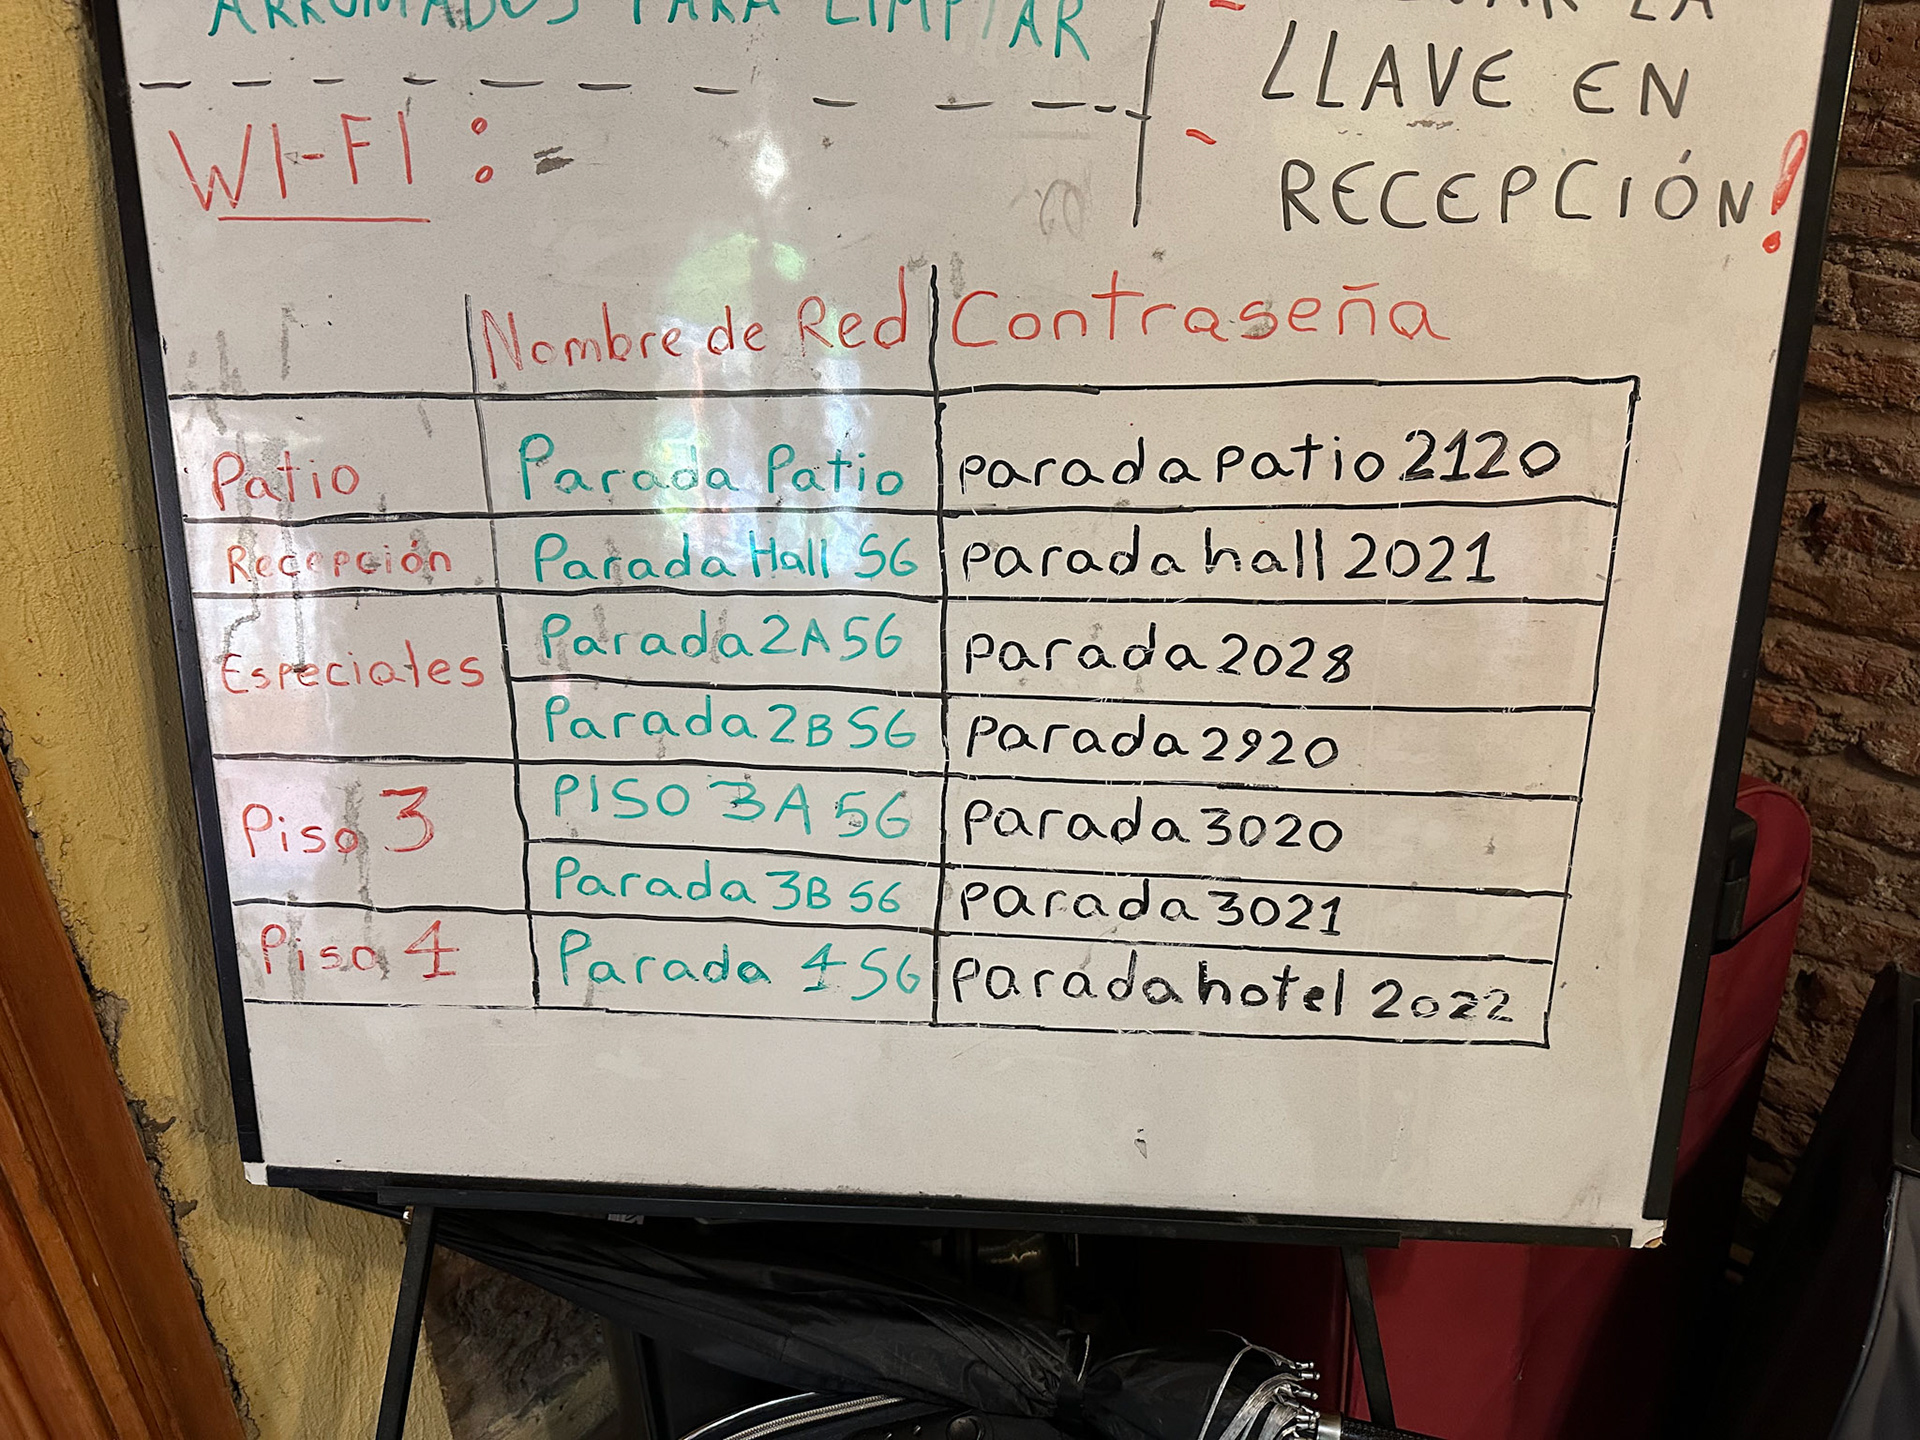 ARRUMADOS PARA LIMPIAR
LA
LLAVE EN
RECEPCIÓN!
WI-FI:
Nombre de Red Contraseña
Patio Parada Patio paradapatio2120
Recepción Parada Hall 5G paradahall2021
Especiales
Parada2A5G parada2028
Parada2B5G parada2920
Piso 3
PISO 3A 5G parada3020
Parada3B5G parada3021
Piso 4 Parada 4 5G paradahotel2022